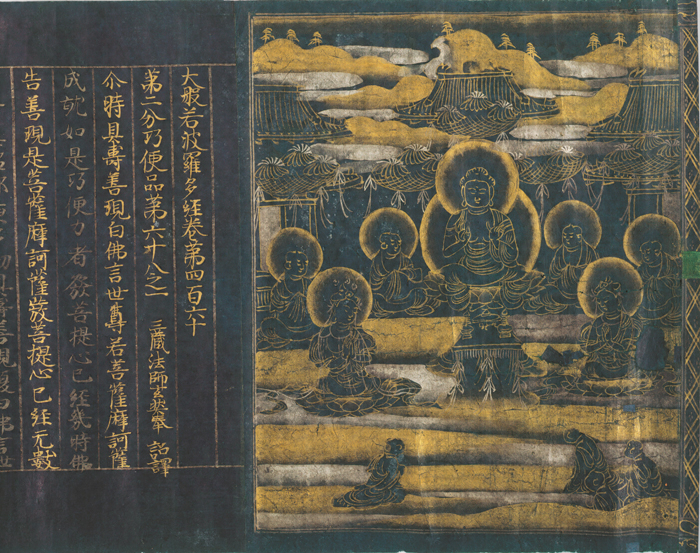 大般若波羅多經卷第四百六十
第二分巧便品第六十八之一　三藏法師玄奘奉　詔譯
尒時具壽善現白佛言世尊若菩薩摩訶薩
成就如是巧便力者發菩提心已經幾時佛
告善現是菩薩摩訶薩發菩提心已經无數
善現復白佛言世